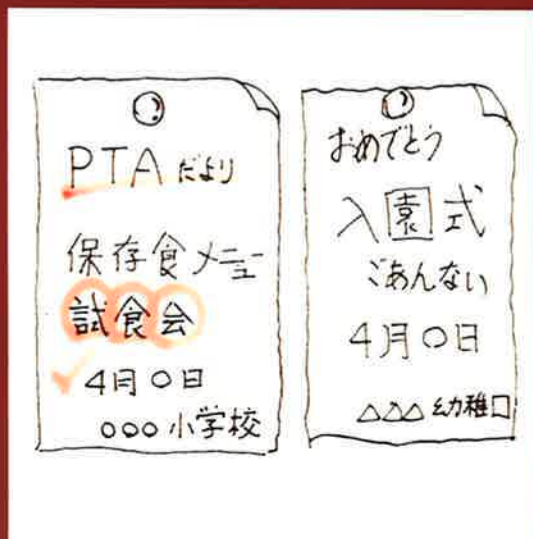 PTAだより
保存食メニュー
試食会
4月○日
○○○小学校
おめでとう
入園式
ごあんない
4月○日
△△△幼稚囗